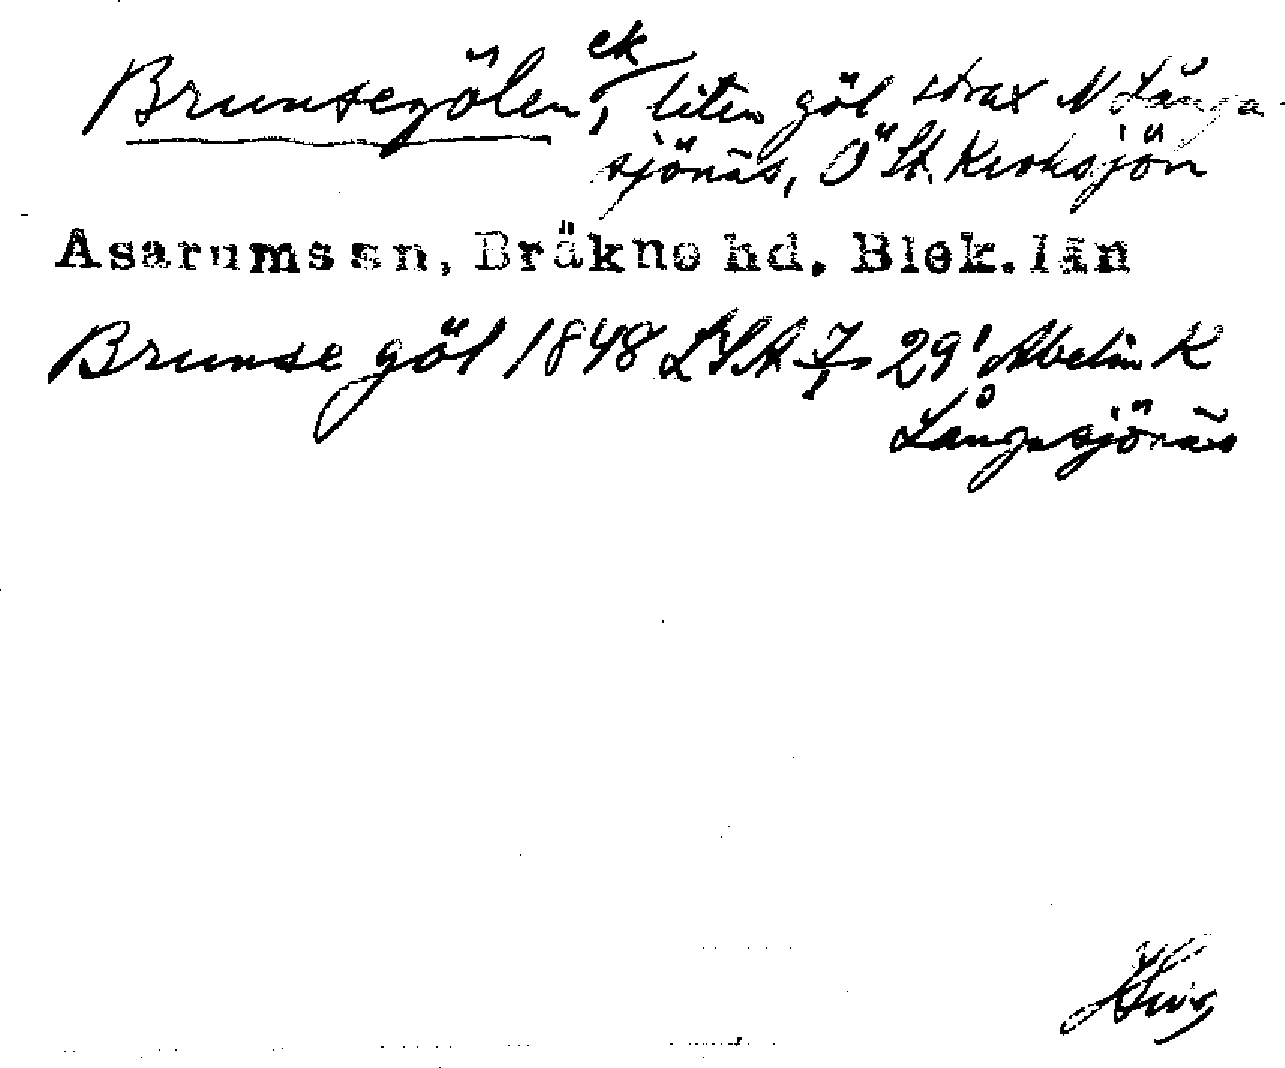 Brunsegölen, ek liten göl strax N Långa-
sjönäs, Ö St. Kroksjön
Asarums sn, Bräkne hd. Blek. län
Brunse göl 1848 LSA 29' Abelin K
Långasjönäs